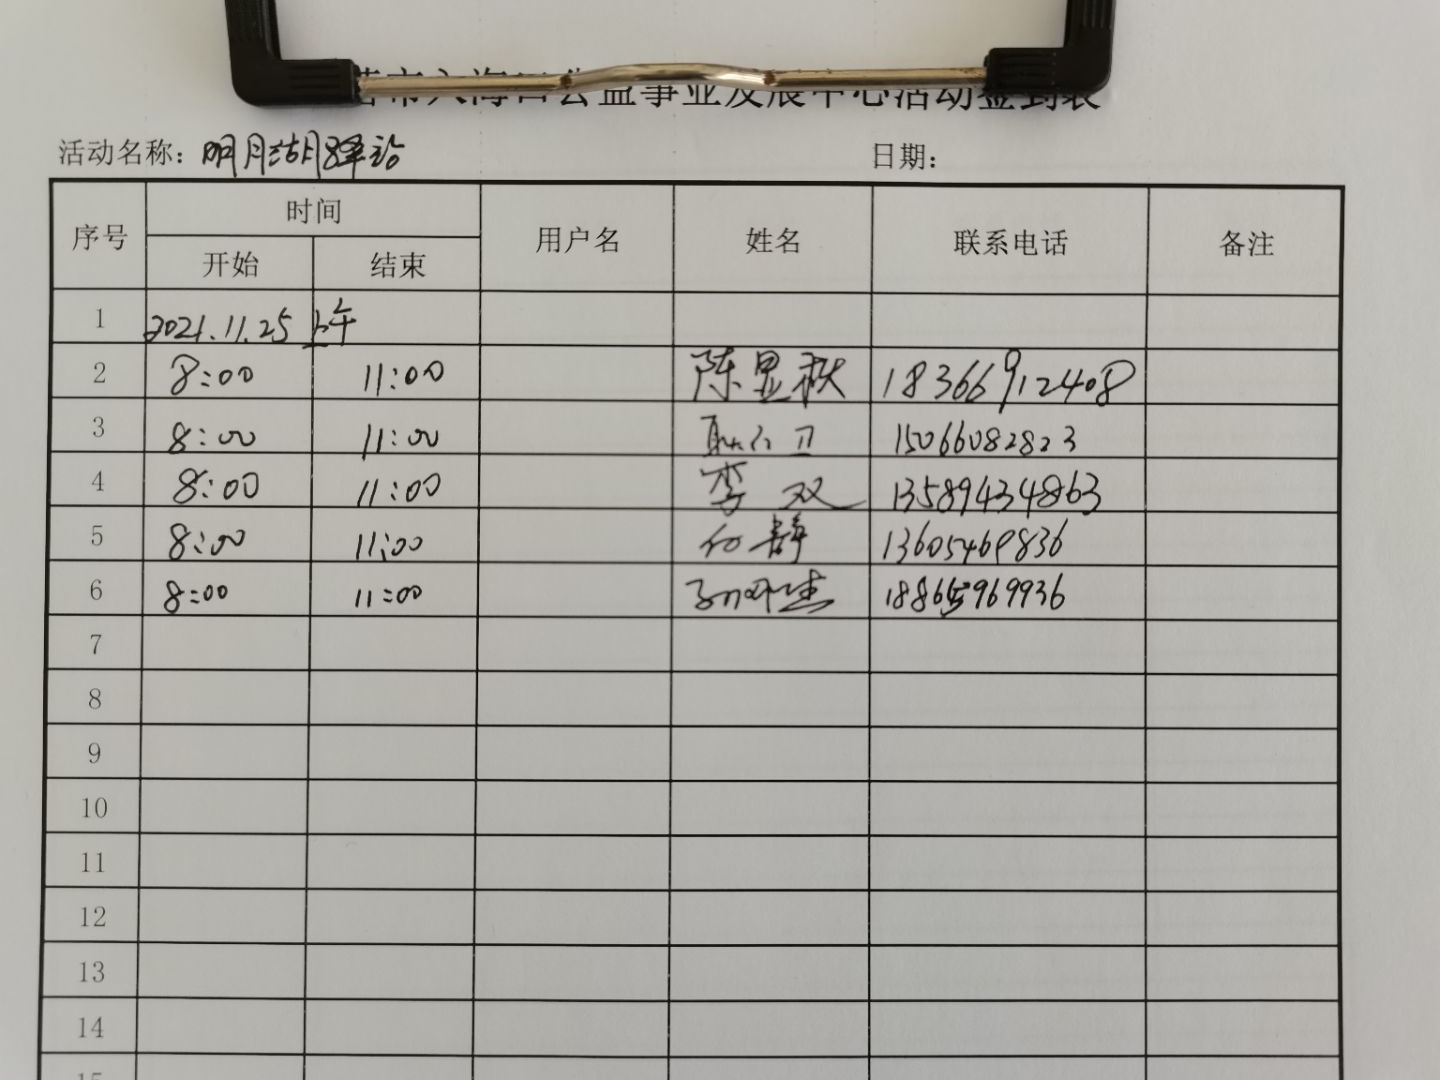 公益事业发展中心活动签到表
活动名称：明月湖驿站 日期：
序号 时间 用户名 姓名 联系电话 备注
开始 结束
1 2021.11.25 上午
2 8:00 11:00 陈显秋 18366912408
3 8:00 11:00 15066082823
4 8:00 11:00 李双 13589434863
5 8:00 11:00 13605469836
6 8:00 11:00 18865969936
7
8
9
10
11
12
13
14
15